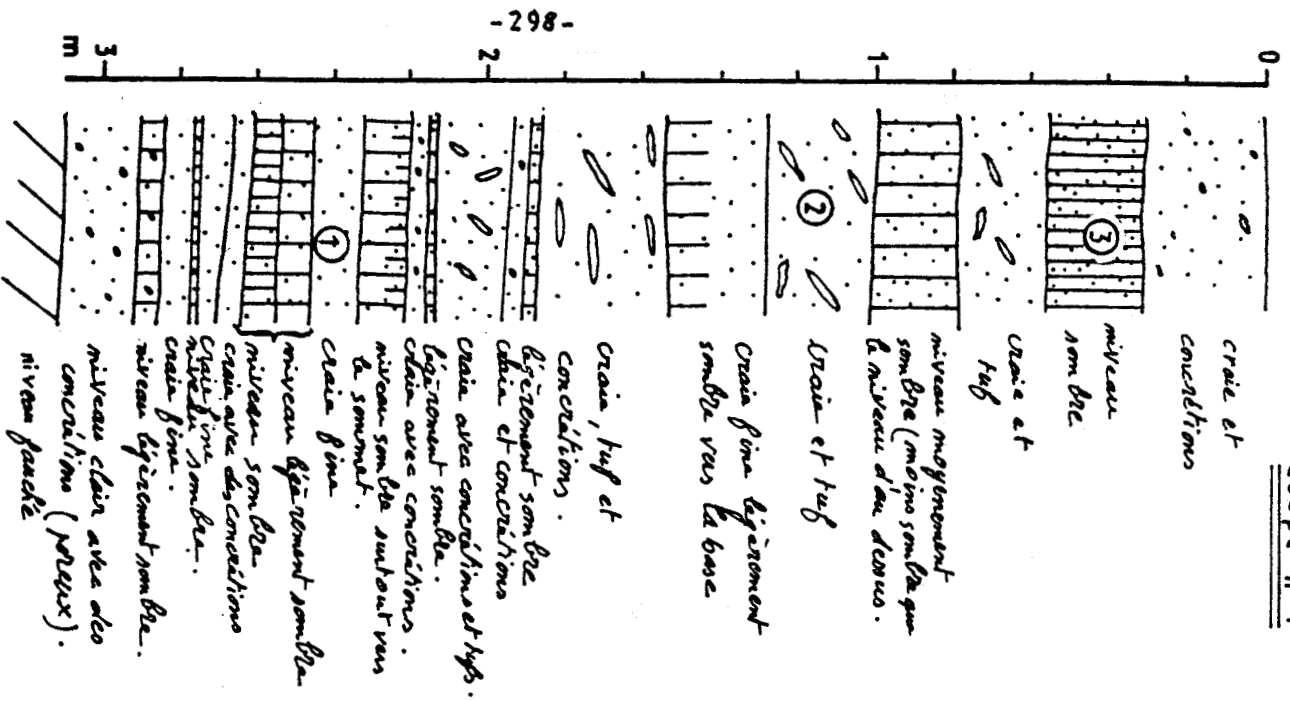 -298-
0
1
2
3
m
craie et
concrétions
niveau
sombre
craie et
tuf
niveau moyennement
sombre (moins sombre que
le niveau d'au dessus.
craie et tuf
craie fine légèrement
sombre vers la base
craie, tuf et
concrétions.
légèrement sombre
claire et concrétions
craie avec concrétions et tufs.
légèrement sombre.
claire avec concrétions.
niveau sombre surtout vers
le sommet.
craie fine
niveau légèrement sombre
niveau sombre
craie avec des concrétions
craie fine
niveau sombre.
craie fine.
niveau légèrement sombre.
niveau clair avec des
concrétions (poreux).
niveau
3
2
1